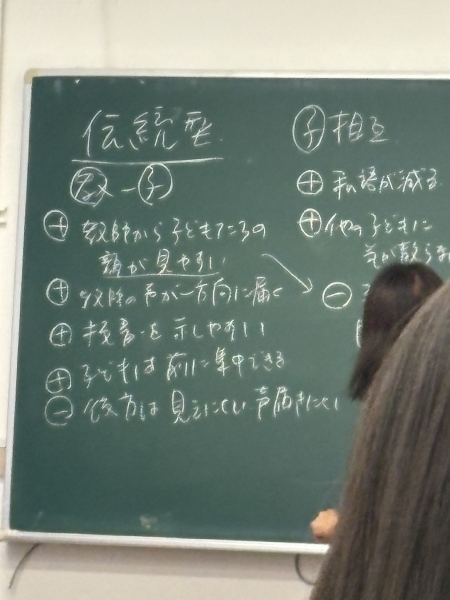 伝統型
教-子
⊕ 教師から子どもたちの
顔が見やすい
⊕ 教師の声が一方向に届く
⊕ 板書を示しやすい
⊕ 子どもは前に集中できる
⊖ 後方は見えにくい 声届きにくい
子 相互
⊕ 私語が減る
⊕ 他の子どもに
気が散らな
⊖